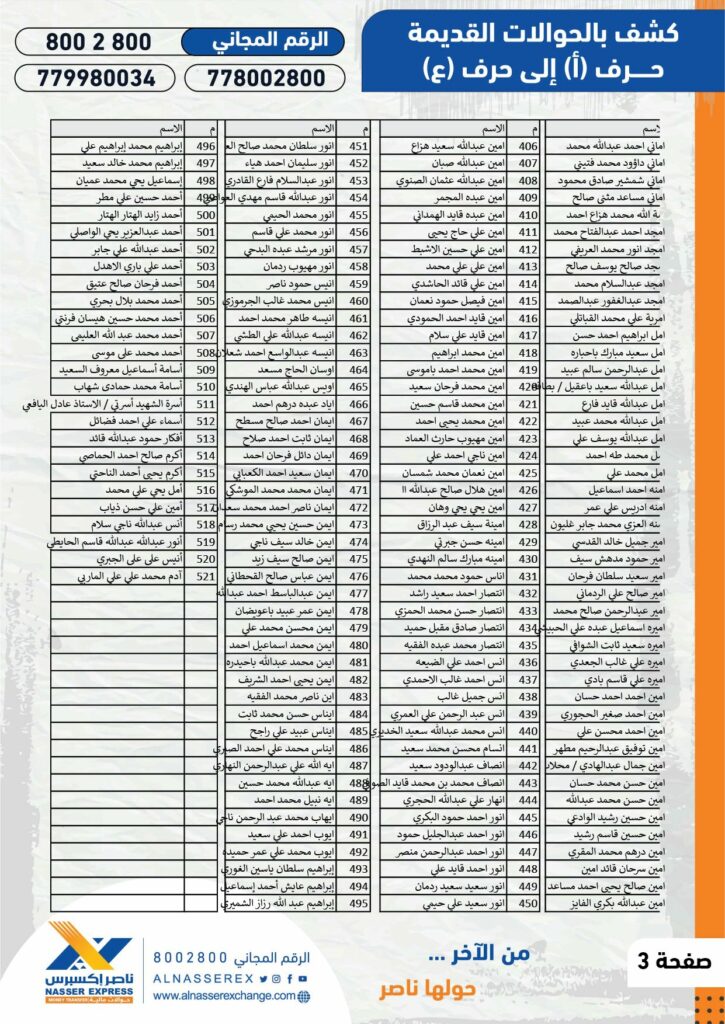 كشف بالحوالات القديمة
حـــرف (أ) إلى حرف (ع)
الرقم المجاني
800 2 800
778002800
779980034
الاسم
اماني احمد عبدالله محمد
اماني داؤود محمد فتيني
اماني شمشير صادق محمود
اماني مساعد مثنى صالح
ة الله محمد هزاع احمد
امجد احمد عبدالفتاح محمد
امجد انور محمد العريفي
بجد صالح يوسف صالح
امجد عبدالسلام محمد
امجد عبدالغفور عبدالصمد
امرية علي محمد القباتلي
امل ابراهيم احمد حسن
امل سعيد مبارك باحباره
امل عبدالرحمن سالم عبيد
امل عبدالله سعيد باعقيل / بطاقة
امل عبدالله قايد فارع
امل عبدالله محمد عبيد
امل عبدالله يوسف علي
ل محمد طه احمد
امل محمد علي
امنه احمد اسماعيل
امنه ادريس علي عمر
منه العزي محمد جابر غليون
امير جميل خالد القدسي
امير حمود مدهش سيف
امير سعيد سلطان فرحان
امير صالح علي الردماني
امير عبدالرحمن صالح محمد
اميره اسماعيل عبده علي الحبيشي
اميره سعيد ثابت الشوافي
اميره علي غالب الجعدي
اميره علي قاسم بادي
امين احمد احمد حسان
امين احمد صغير الحجوري
امين احمد محسن علي
امين توفيق عبدالرحيم مطهر
امين جمال عبدالهادي / محلات
امين حسن محمد حسان
امين حسن محمد عبدالله
امين حسين رشيد الوادعي
امين حسين قاسم رشيد
امين درهم محمد المقري
امين سرحان قائد امين
امين صالح يحيى احمد مساعد
امين عبدالله بكري الفايز
م الاسم
406 امين عبدالله سعيد هزاع
407 امين عبدالله صبان
408 امين عبدالله عثمان الصنوي
409 امين عبده المجمر
410 امين عبده قايد الهمداني
411 امين علي حاج يحيى
412 امين علي حسين الاشبط
413 امين علي علي محمد
414 امين علي قائد الحاشدي
415 امين فيصل حمود نعمان
416 امين قايد احمد الحمودي
417 امين قايد علي سلام
418 امين محمد ابراهيم
419 امين محمد احمد باموسى
420 امين محمد فرحان سعيد
421 امين محمد قاسم حسين
422 امين محمد يحيى احمد
423 امين مهيوب حارث العماد
424 امين ناجي احمد علي
425 امين نعمان محمد شمسان
426 امين هلال صالح عبدالله اا
427 امين يحي يحي وهان
428 امينة سيف عبد الرزاق
429 امينه حسن جبرتي
430 امينه مبارك سالم النهدي
431 اناس حمود محمد محمد
432 انتصار احمد سعيد راشد
433 انتصار حسن محمد الحمزي
434 انتصار صادق مقبل حميد
435 انتصار محمد عبده الفقيه
436 انس احمد علي الضيعه
437 انس احمد غالب الاحمدي
438 انس جميل غالب
439 انس عبد الرحمن علي العمري
440 انس محمد عبدالله سعيد الخديري
441 انسام محسن محمد سعيد
442 انصاف عبدالودود سعيد
443 انصاف محمد بن محمد قايد الصوفي
444 انهار علي عبدالله الحجري
445 انور احمد حمود البكري
446 انور احمد عبدالجليل حمود
447 انور احمد عبدالرحمن منصر
448 انور احمد قايد علي
449 انور سعيد سعيد ردمان
450 انور سعيد علي حيمي
م الاسم
451 انور سلطان محمد صالح الع
452 انور سليمان احمد هباء
453 انور عبدالسلام فارع القادري
454 انور عبدالله قاسم مهدي العواضي
455 انور محمد الحيمي
456 انور محمد علي قاسم
457 انور مرشد عبده البدحي
458 انور مهيوب ردمان
459 انيس حمود ناصر
460 انيس محمد غالب الجرموزي
461 انيسه طاهر محمد احمد
462 انيسه عبدالله علي الطشي
463 انيسه عبدالواسع احمد شعلان
464 اوسان الحاج مسعد
465 اويس عبدالله عباس الهندي
466 اياد عبده درهم احمد
467 ايمان احمد صالح مسطح
468 ايمان ثابت احمد صلاح
469 ايمان دائل فرحان احمد
470 ايمان سعيد احمد الكعباني
471 ايمان محمد محمد الموشكي
472 ايمان ناصر احمد محمد سعدان
473 ايمن حسين يحيى محمد رسام
474 ايمن خالد سيف ناجي
475 ايمن صالح سيف زيد
476 ايمن عباس صالح القحطاني
477 ايمن عبدالباسط احمد عبدالله
478 ايمن عمر عبيد باعويضان
479 ايمن محسن محمد علي
480 ايمن محمد اسماعيل احمد
481 ايمن محمد عبدالله باحيدره
482 ايمن يحيى احمد الشريف
483 اين ناصر محمد الفقيه
484 ايناس حسن محمد ثابت
485 ايناس عبيد علي راجح
486 ايناس محمد علي احمد الصبري
487 ايه الله علي عبدالرحمن النهاري
488 ايه عبدالله محمد حسين
489 ايه نبيل محمد احمد
490 ايهاب محمد عبد الرحمن ناجي
491 ايوب احمد علي سعيد
492 ايوب محمد علي عمر حميده
493 إبراهيم سلطان ياسين الغوري
494 إبراهيم عايش أحمد إسماعيل
495 إبراهيم عبد الله رزاز الشميري
م الاسم
496 إبراهيم محمد إبراهيم علي
497 إبراهيم محمد خالد سعيد
498 إسماعيل يحي محمد عميان
499 أحمد حسين علي مطر
500 أحمد زايد الهتار الهتار
501 أحمد عبدالعزيز يحي الواصلي
502 أحمد عبدالله علي جابر
503 أحمد علي باري الاهدل
504 أحمد فرحان صالح عتيق
505 أحمد محمد بلال بحري
506 أحمد محمد حسين هيسان فرنتي
507 أحمد محمد عبد الله العليمي
508 أحمد محمد على موسى
509 أسامة أسماعيل معروف السعيد
510 أسامة محمد حمادى شهاب
511 أسرة الشهيد أسرتي / الاستاذ عادل اليافعي
512 أسماء علي احمد فضائل
513 أفكار حمود عبدالله قائد
514 أكرم صالح احمد الحماصي
515 أكرم يحيى أحمد الناحتي
516 أمل يحي علي محمد
517 أمين علي حسن ذياب
518 أنس عبدالله ناجي سلام
519 أنور عبدالله عبدالله قاسم الحايطي
520 أنيس على على الجبري
521 آدم محمد علي علي الماربي
صفحة 3
من الآخر ...
حولها ناصر
الرقم المجاني 8002800
ALNASSEREX
www.alnasserexchange.com
ناصر إكسبرس
NASSER EXPRESS
MONEY TRANSFER حوالات مالية